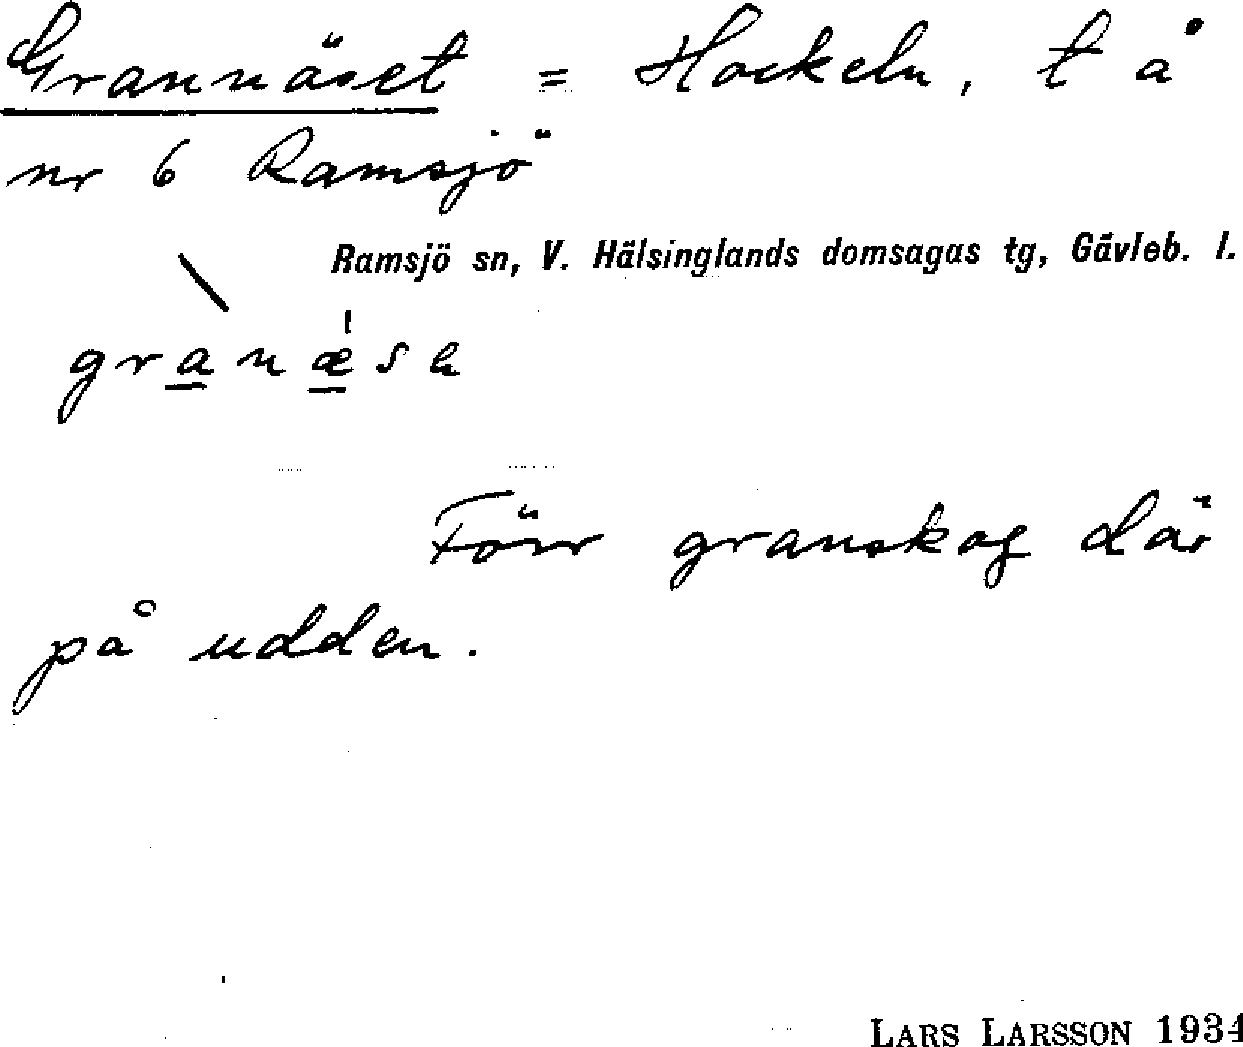 Grannäset = Hockeln, t å
nr 6 Ramsjö
Ramsjö sn, V. Hälsinglands domsagas tg, Gävleb. l.
granæsə
Förr granskog där
på udden.
LARS LARSSON 1934